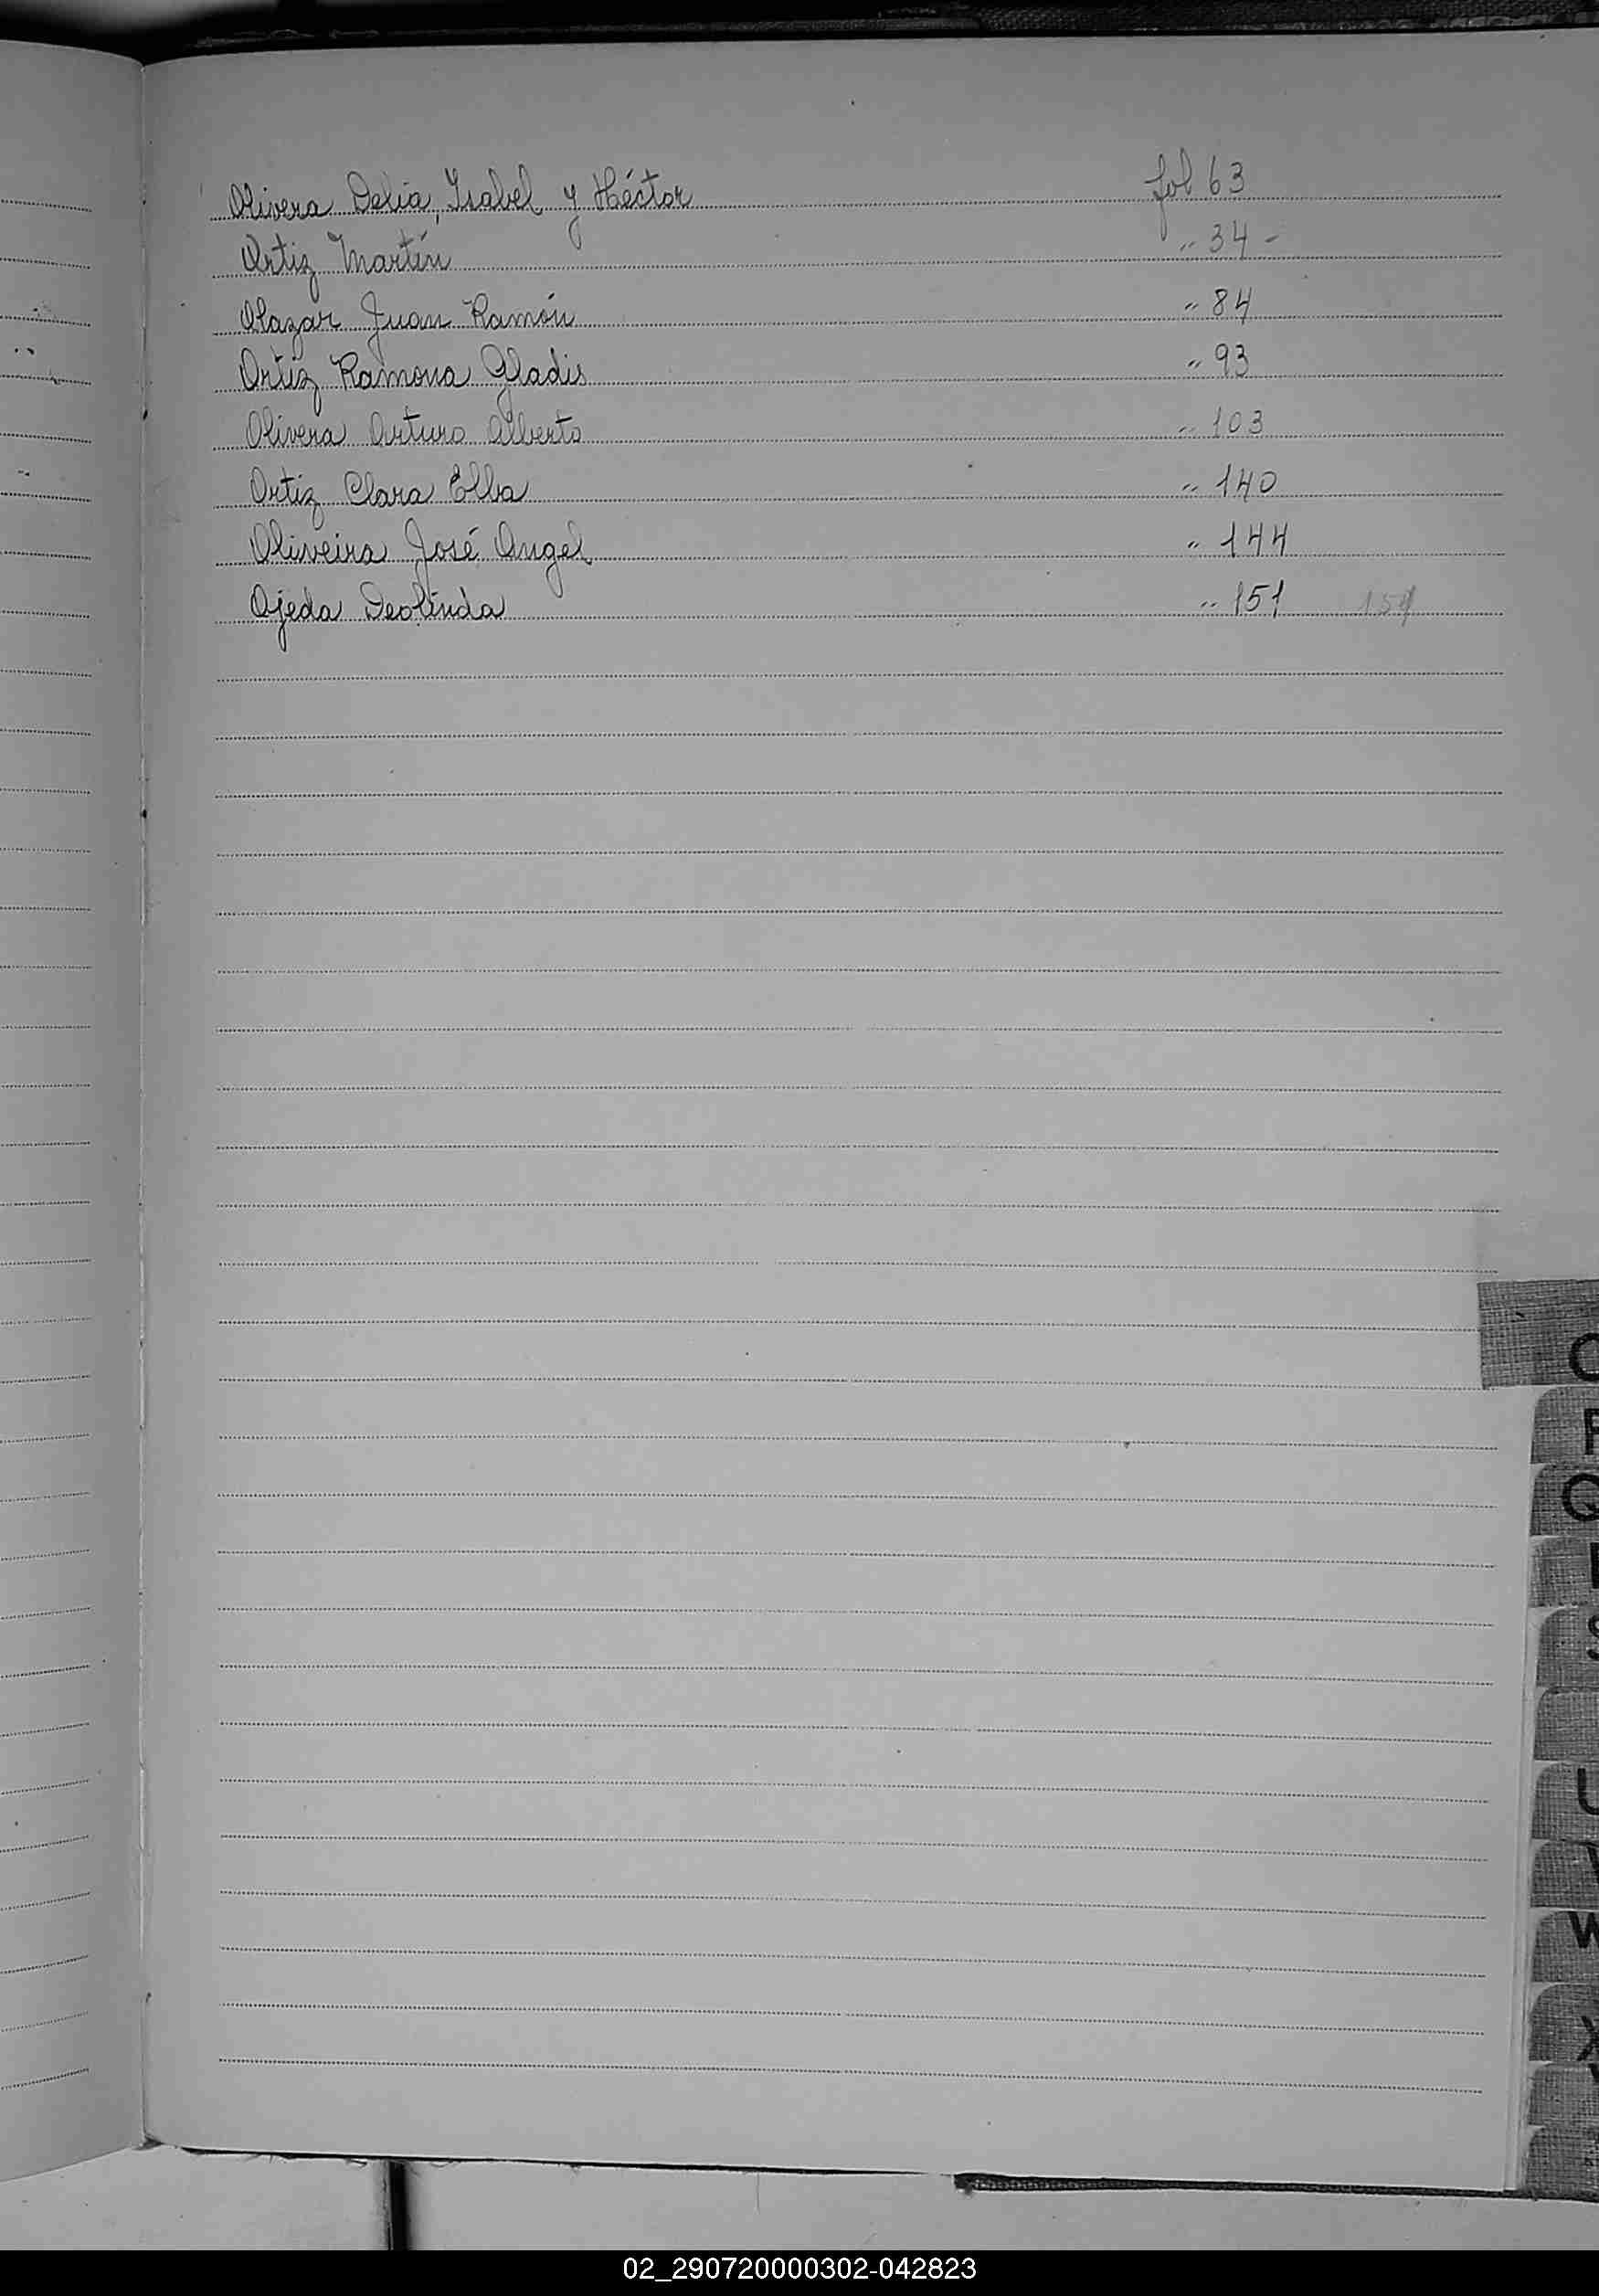 Olivera Delia, Isabel y Héctor fol 63
Ortiz Martín " 34 -
Olazar Juan Ramón " 84
Ortiz Ramona Gladis " 93
Olivera Arturo Alberto " 103
Ortiz Clara Elba " 140
Oliveira José Angel " 144
Ojeda Deolinda " 151
O
P
Q
S
U
W
X
02_290720000302-042823